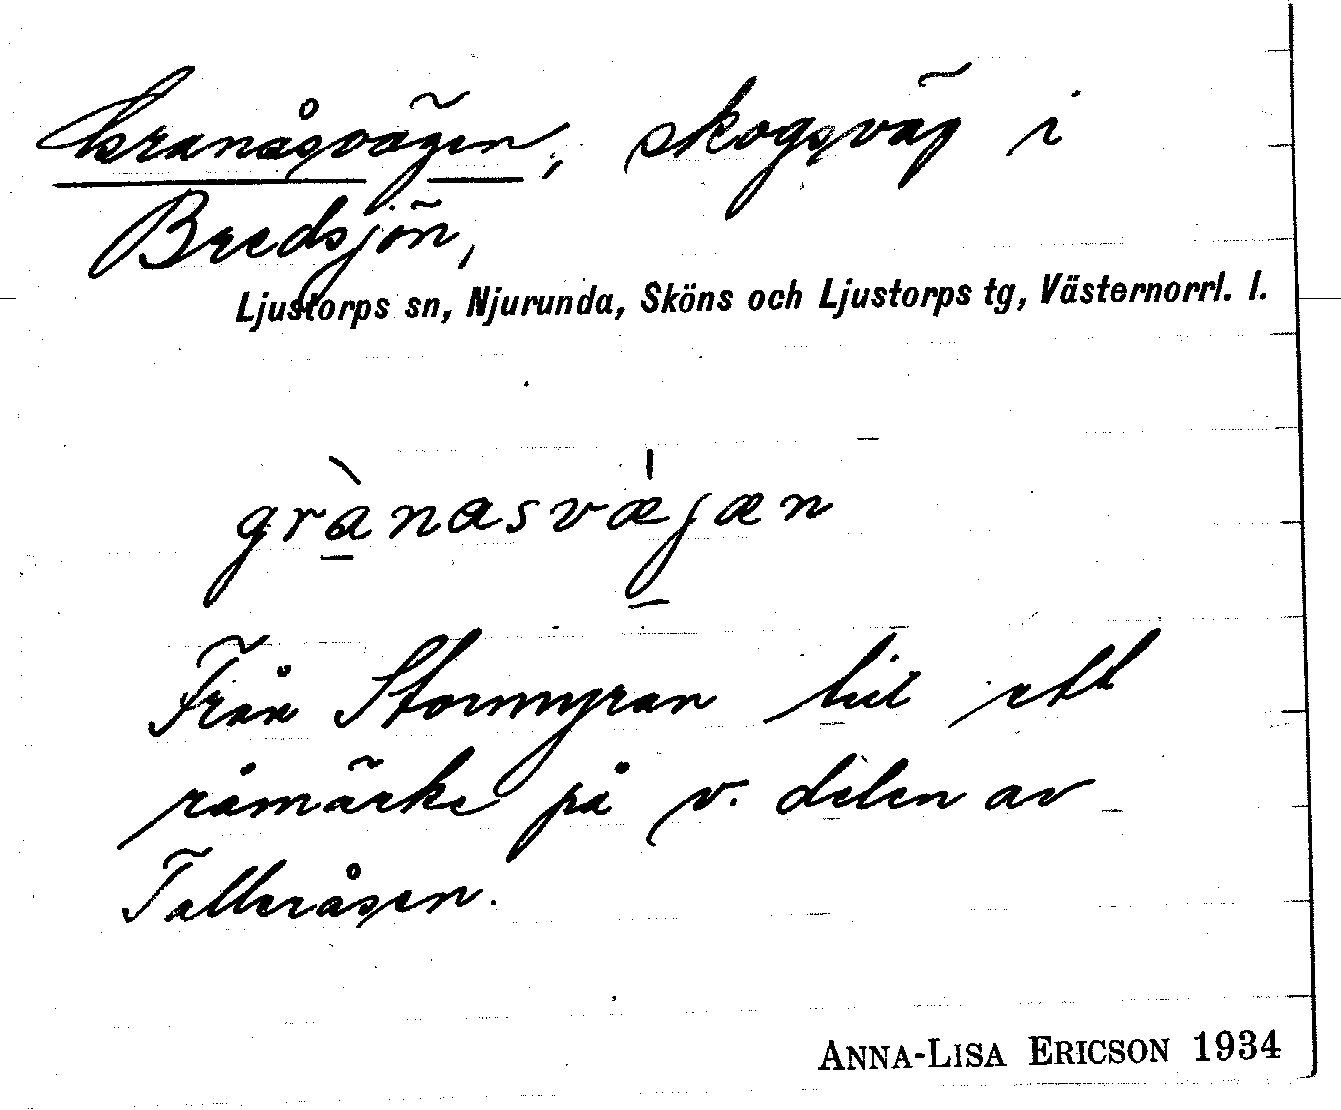 Granåsvägen, skogsväg i
Bredsjön,
Ljustorps sn, Njurunda, Sköns och Ljustorps tg, Västernorrl. l.
grànasvæ̀jæn
Från Stormyran till ett
råmärke på v. delen av
Talleråsen.
ANNA-LISA ERICSON 1934